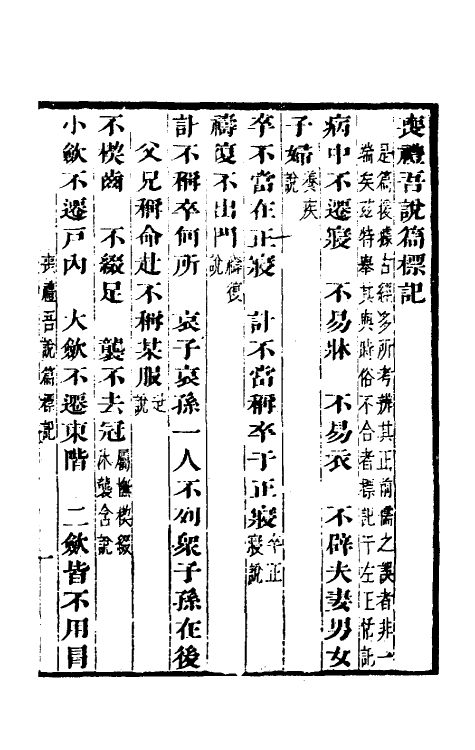 喪禮吾說篇標記
是篇後據古經多所考辨其正前儒之誤者非一
端矣茲特舉其與時俗不合者標記于左正佑記
病中不遷寢　不易牀　不易衣　不辟夫妻男女
子婦養疾說
卒不當在正寢　訃不當稱卒于正寢卒正寢說
禱復不出門禱復說
訃不稱卒何所　哀子哀孫一人不列衆子孫在後
父兄稱命赴不稱某服赴說
不楔齒　不綴足　襲不去冠屬纊楔綴沐襲含說
小斂不遷戶內　大斂不遷東階　二斂皆不用冒
喪禮吾說篇標記　一